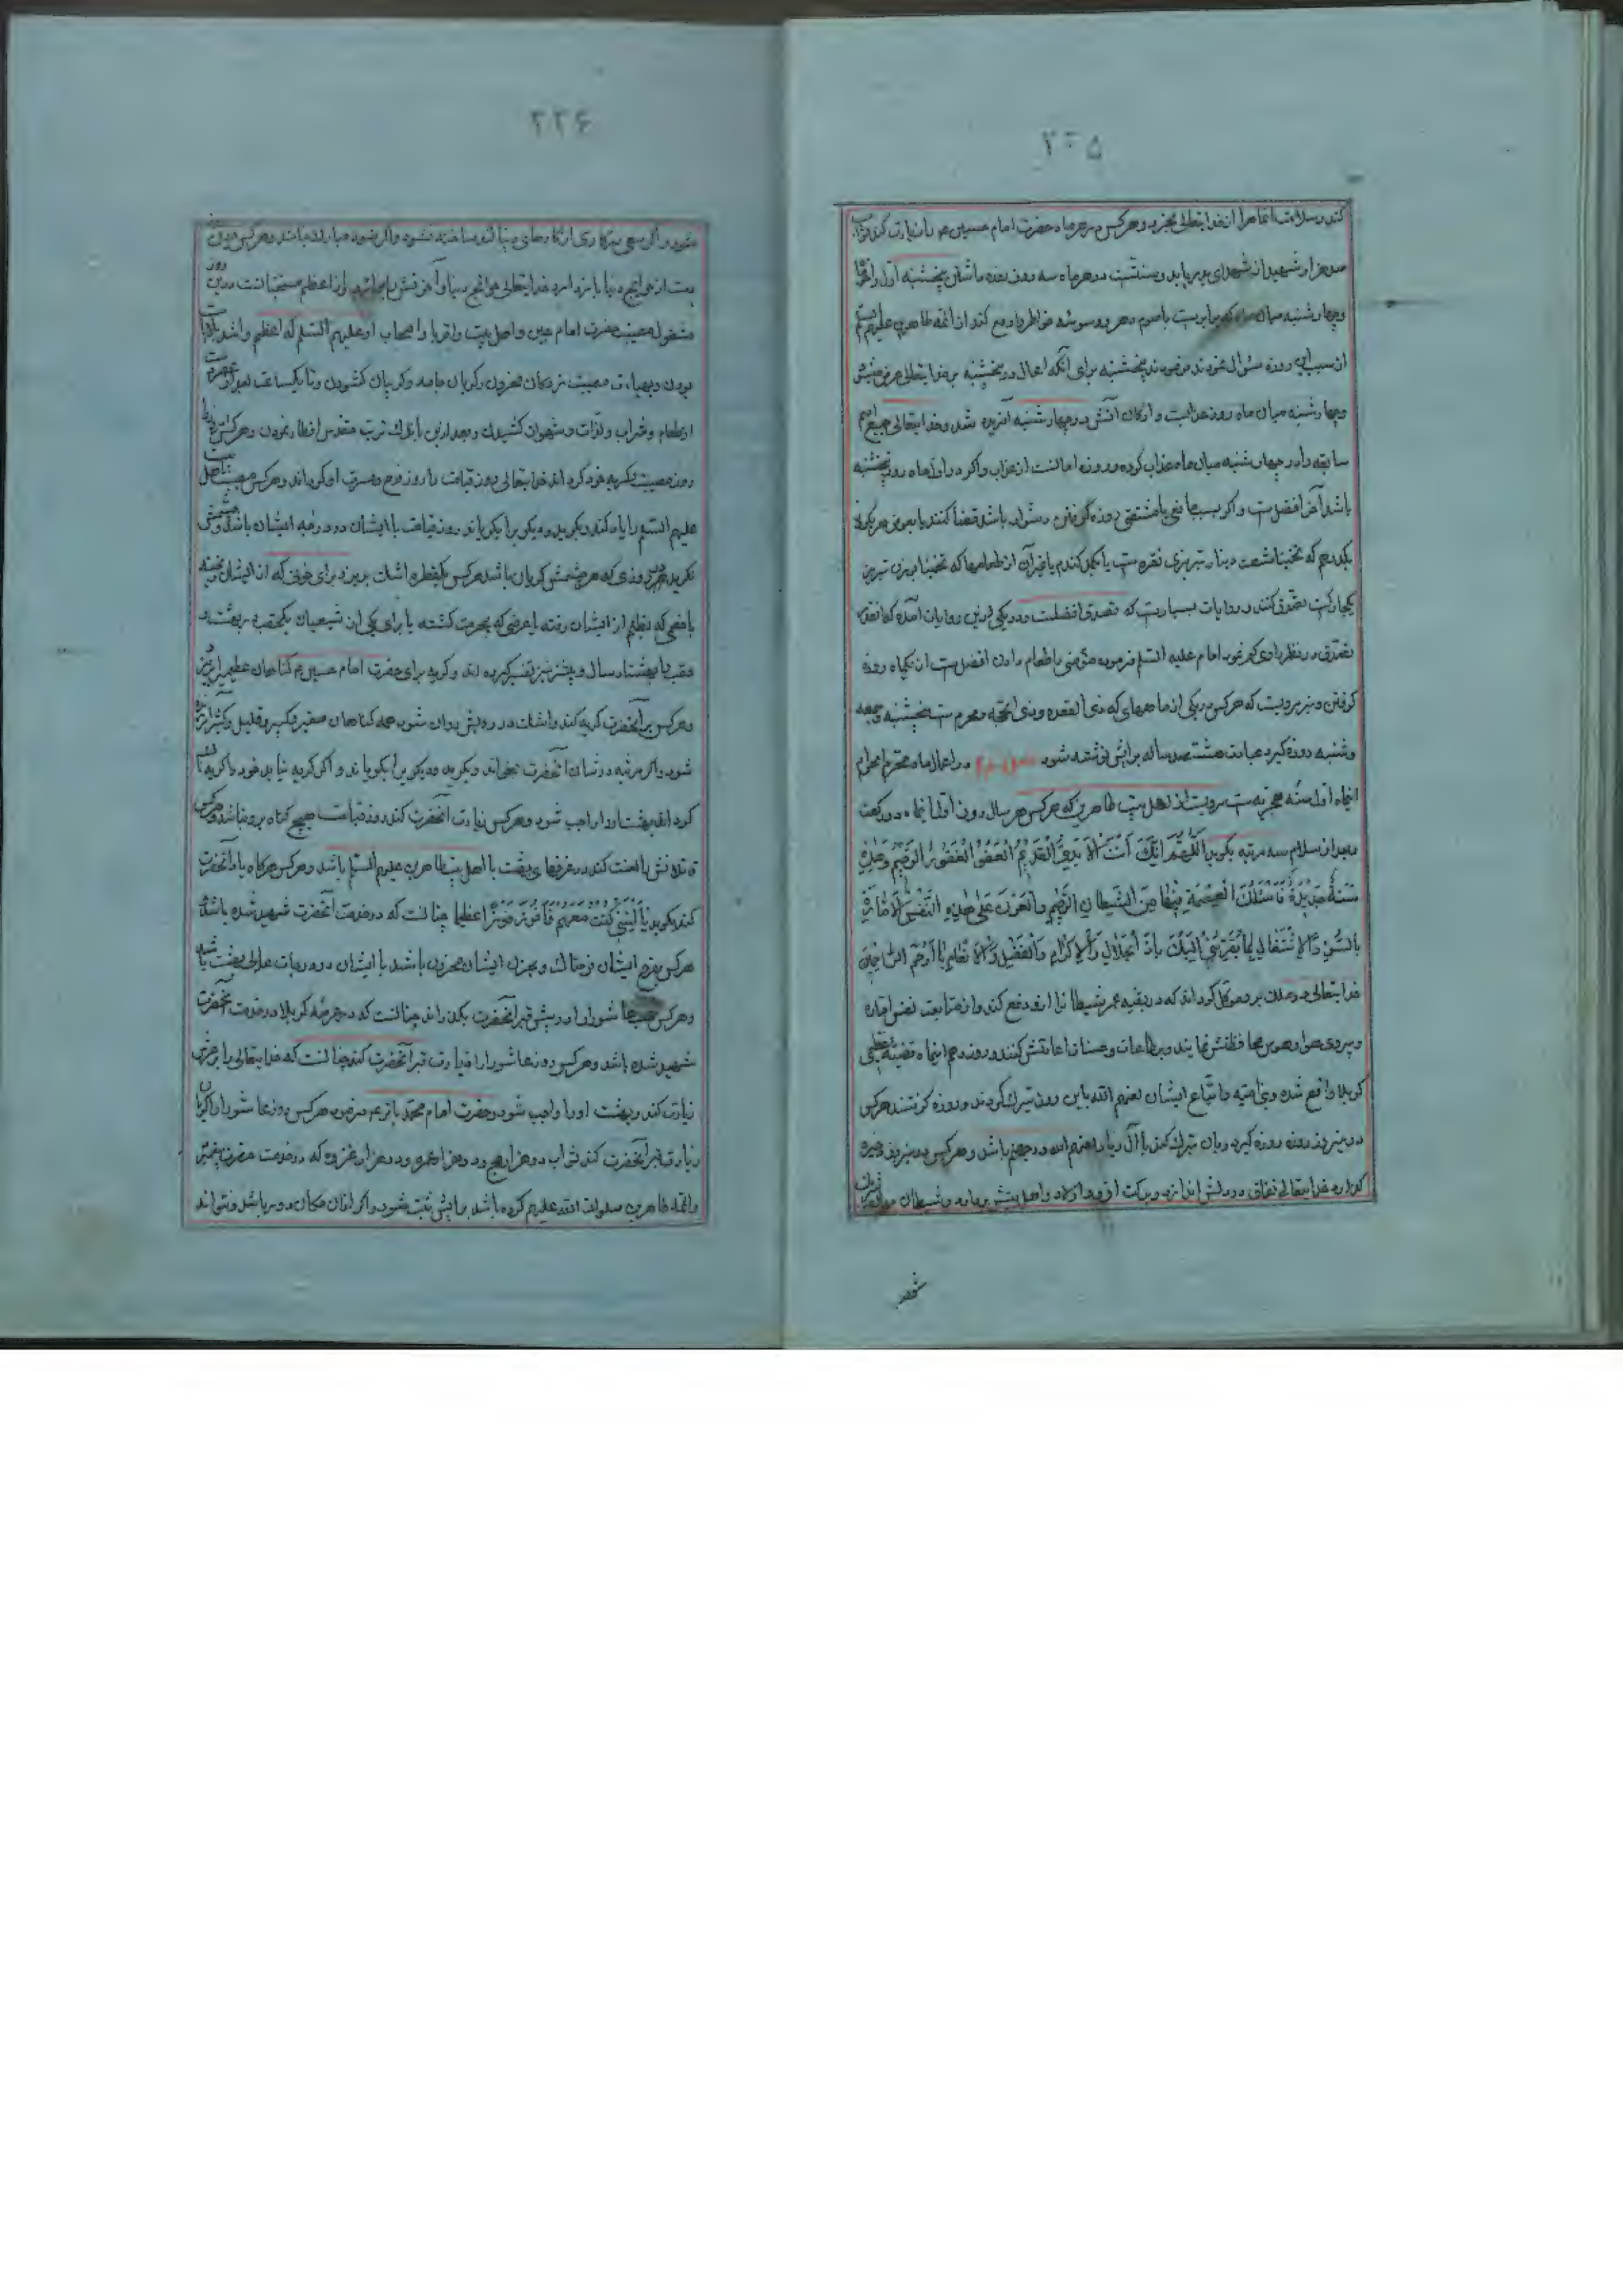 ۲۲۵
کند و سلامت آنماهرا از خدایتعالی بخرد و هرکس در هر ماه حضرت امام حسین ع را زیارت کند ثواب
صد هزار شهید از شهدای بدر یابد و سنتست در هر ماه سه روز روزه داشتن پنجشنبه اول و آخر
و چهارشنبه میان ماه که برابرست با صوم دهر و وسوسه خاطر را دفع کند از ائمه طاهرین علیهم
از سبب این روزه سؤال نمودند فرمودند پنجشنبه برای آنکه اعمال در پنجشنبه بر خدایتعالی عرض میشود
و چهارشنبه میان ماه روز عذابست و ارکان آتش در چهارشنبه آفریده شد و خدایتعالی جمیع امم
سابقه را در چهارشنبه میان ماه عذاب کرده و روزه امانست از عذاب و اگر در اول ماه دو پنجشنبه
باشد آخر افضل ست و اگر بسبب مانعی یا مشقتی روزه گرفتن دشوار باشد قضا کنند یا بعوض هر یکروز
یکدرهم که تخمینا شصت دینار تبریزی نقره ست یا یکمد گندم یا غیر آن از طعامها که تخمینا بوزن تبریز
یکچارکست تصدق کنند و روایات بسیارست که تصدق افضلست و در یکی از این روایات آمده که
تصدق در نظر راوی کم نمود امام علیه السلم فرمود مؤمنی را طعام دادن افضل ست از یکماه روزه
گرفتن و نیز مرویست که هرکس در یکی از ماههای که ذی القعده و ذی الحجه و محرم ست پنجشنبه و جمعه
و شنبه روزه گیرد عبادت هشتصد ساله برایش نوشته شود در اعمال ماه محترم محرم
اینماه اول سنه هجریه ست مرویست از اهل بیت طاهرین که هرکس هر سال روز اول اینماه دو رکعت
بعد از سلام سه مرتبه بگوید اَللّهُمَّ اِنَّکَ اَنْتَ الْاَبَدِیُّ الْقَدیمُ الْعَفُوُّ الْغَفُورُ الرَّحیمُ وَهذِهِ
سَنَةٌ جَدیدَةٌ فَاَسْئَلُکَ الْعِصْمَةَ فیها مِنَ الشَّیْطانِ الرَّجیمِ وَالْعَوْنَ عَلی هذِهِ النَّفْسِ الْاَمّارَةِ
بِالسُّوءِ وَالْاِشْتِغالِ بِما یُقَرِّبُنی اِلَیْکَ یا ذَا الْجَلالِ وَالْاِکْرامِ یا اَرْحَمَ الرّاحِمینَ
خدایتعالی دو ملک بر او موکل گرداند که در بقیه عمر شیطانرا از او دفع کند و از متابعت نفس اماره
و پیروی هوا و هوس محافظتش نمایند و بر طاعات و حسنات اعانتش کنند و روز دهم اینماه قضیه عظمی
کربلا واقع شده و بنی امیه و اتباع ایشان لعنهم الله باین روز تبرک کردند و روزه گرفتند هرکس
در این روز روزه گیرد و بآن تبرک کند با آل زیاد لعنهم الله در جهنم باشد و هرکس در این روز ذخیره
گذارد خدایتعالی نفاق در دلش اندازد و برکت از او و اولاد و اهل بیتش بردارد و شیطان
۲۲۶
شود و اگر سعی در کاری از کارهای دنیا کند ساخته نشود و اگر شود مبارک نباشد و هرکس در این روز
دست از حوایج دنیا باز دارد خدایتعالی حوایج دنیا و آخرتش را برآورد و از اعظم مستحبانست در این روز
مشغول مصیبت حضرت امام حسین و اهل بیت و اقربا و اصحاب او علیهم السلم که اعظم و اشد
بودن و بهیات مصیبت زدگان محزون و گریان جامه و گریبان گشودن و تا یکساعت بعد از
از طعام و شراب و لذات و شهوات کشیدن و بعد از آن باندک تربت مقدس افطار نمودن و هرکس این روز را
روز مصیبت و گریه خود گرداند خدایتعالی روز قیامت را روز فرح و مسرت او گرداند و هرکس مصیبت اهل بیت
علیهم السلم را یاد کند و بگرید و دیگری را بگریاند روز قیامت با ایشان در درجه ایشان باشد و چشمش
نگرید در روزی که هر چشمش گریان باشد هرکس یکقطره اشک بریزد برای خونی که از ایشان ریخته
یا حقی که بظلم از ایشان رفته یا عرضی که بیحرمت گشته یا برای یکی از شیعیان یکحقبه در بهشت
حقب را هشتاد سال و بیشتر نیز تفسیر کرده اند و گریه برای حضرت امام حسین ع گناهان عظیم را بریزد
و هرکس بر آنحضرت گریه کند و اشک در رویش روان شود همه گناهان صغیر و کبیر و قلیل و کثیر آمرزیده
شود و اگر مرثیه در شان آنحضرت بخواند و بگرید و دیگری را بگریاند و اگر گریه نیاید خود را گریه نما
کرداند بهشت او را واجب شود و هرکس زیارت آنحضرت کند روز قیامت هیچ گناه بر او نباشد و هرکس
قاتلانش را لعنت کند در غرفهای بهشت با اهل بیت طاهرین علیهم السلم باشد و هرکس هرگاه یاد آنحضرت
کند بگوید یا لَیْتَنی کُنْتُ مَعَهُمْ فَاَفُوزَ فَوْزاً عَظیماً چنانست که در خدمت آنحضرت شهید شده باشد
هرکس بفرح ایشان فرحناک و بحزن ایشان محزون باشد با ایشان در درجات عالی بهشت باشد
و هرکس شب عاشورا را در پیش قبر آنحضرت بگذراند چنانست که در عرصه کربلا در خدمت آنحضرت
شهید شده باشد و هرکس روز عاشورا زیارت قبر آنحضرت کند چنانست که خدایتعالی را بر عرش
زیارت کند و بهشت او را واجب شود و حضرت امام محمد باقر ع فرمود هرکس روز عاشورا
زیارت قبر آنحضرت کند ثواب دو هزار حج و دو هزار عمره و دو هزار غزوه که در خدمت حضرت پیغمبر
و ائمه طاهرین صلوات الله علیهم کرده باشد برایش ثبت شود و اگر از آن مکان دور باشد و نتواند